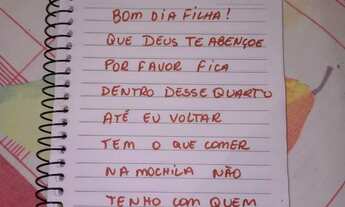 BOM DIA FILHA!
QUE DEUS TE ABENÇOE
POR FAVOR FICA
DENTRO DESSE QUARTO
ATÉ EU VOLTAR
TEM O QUE COMER
NA MOCHILA NÃO
TENHO COM QUEM